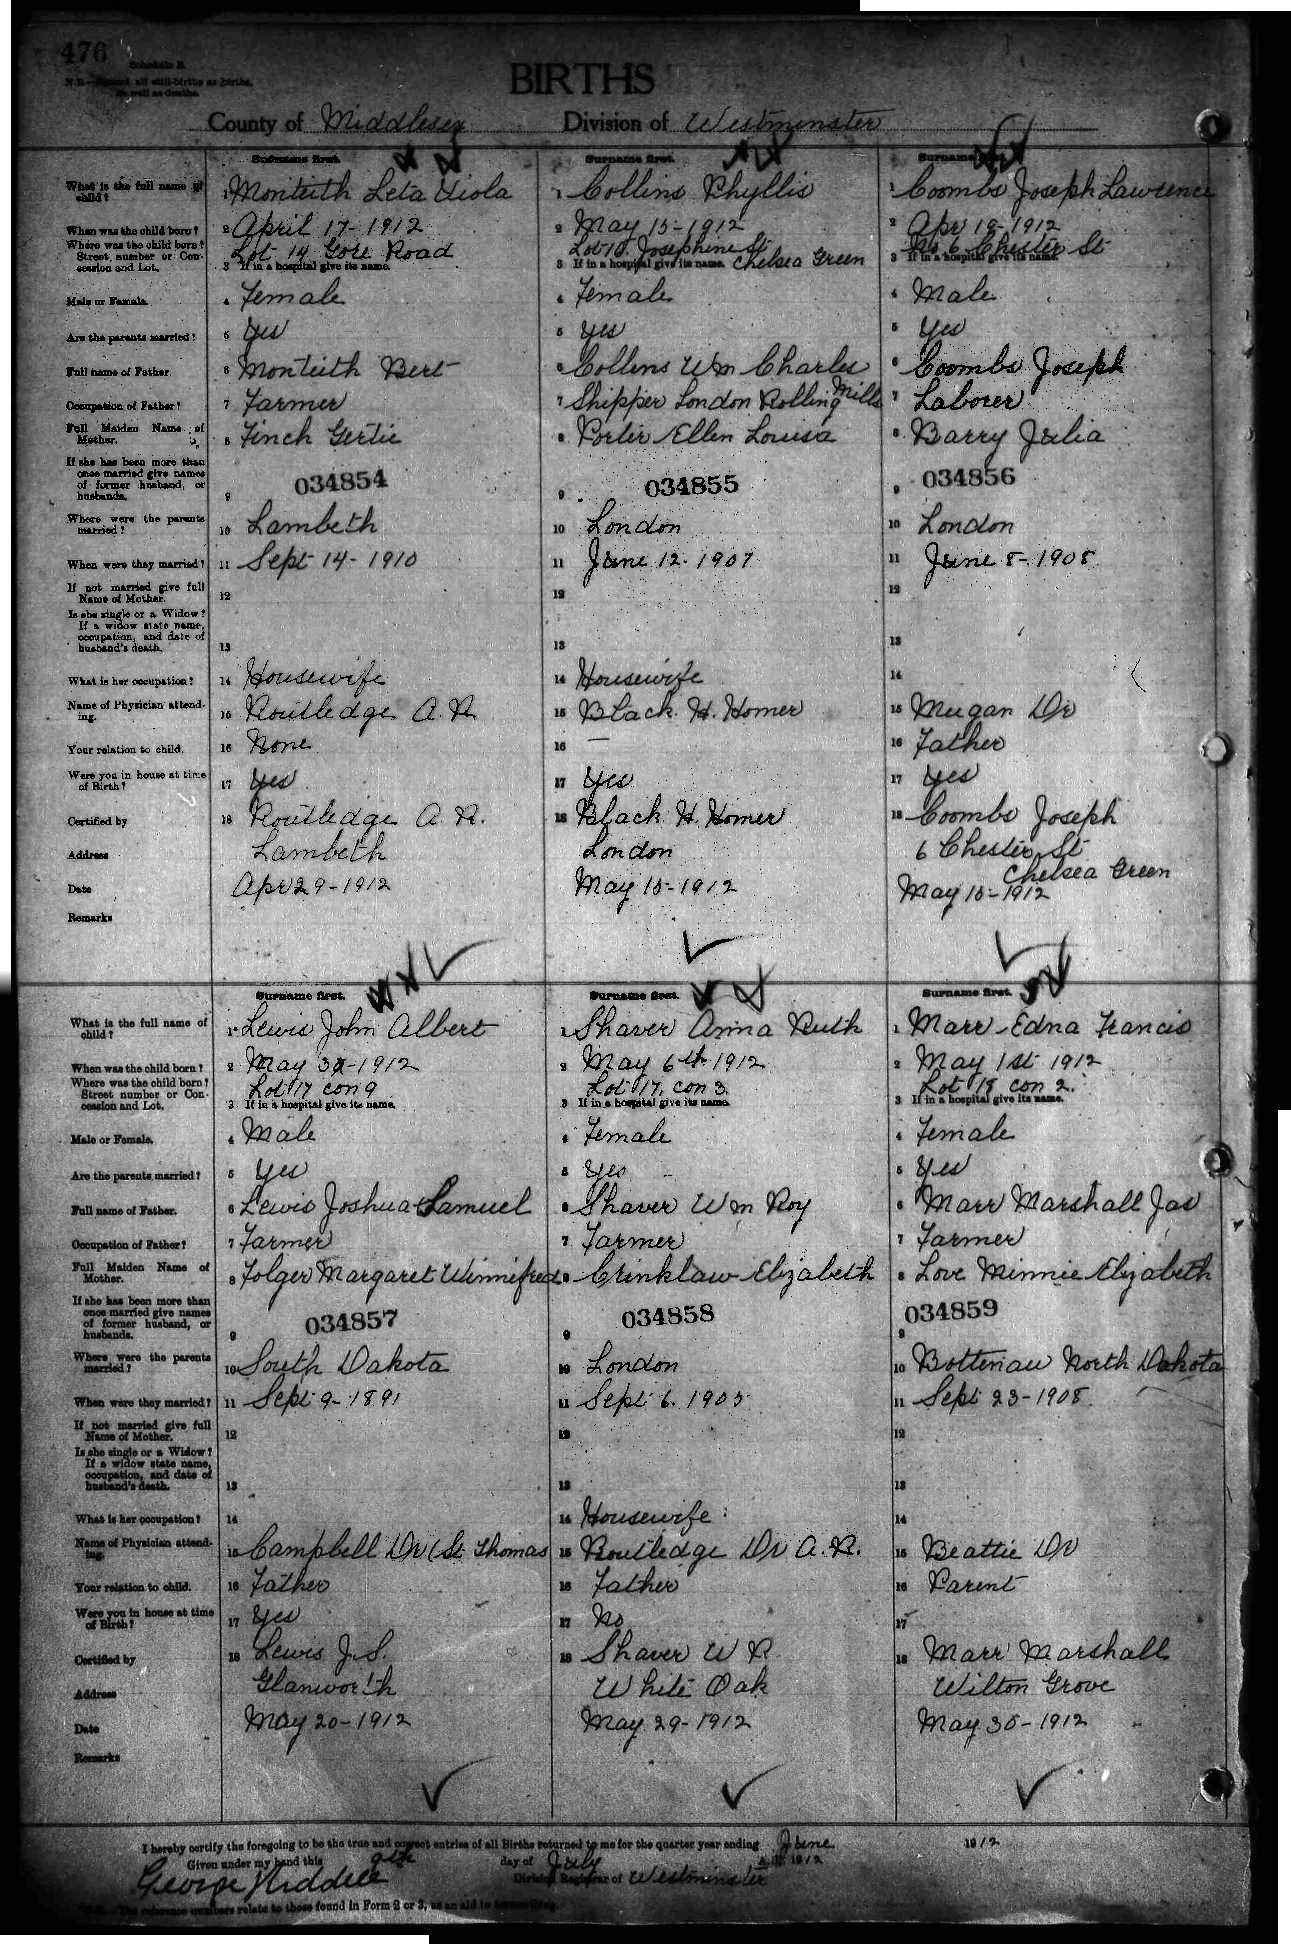 476
Schedule B.
N.B.—Record all still-births as births,
as well as deaths.
BIRTHS
County of Middlesex Division of Westminster
Surname first. Surname first. Surname first.
What is the full name of child? 1 Monteith Leta Viola 1 Collins Phyllis 1 Coombs Joseph Lawrence
When was the child born? 2 April 17-1912 2 May 15-1912 2 Apr 18-1912
Where was the child born? Street, number or Concession and Lot. Lot 14 Gore Road Lot 10. Josephine St No 6 Chester St
3 If in a hospital give its name. 3 If in a hospital give its name. Chelsea Green 3 If in a hospital give its name.
Male or Female. 4 Female 4 Female 4 Male
Are the parents married? 5 Yes 5 Yes 5 Yes
Full name of Father. 6 Monteith Bert 6 Collins Wm Charles 6 Coombs Joseph
Occupation of Father? 7 Farmer 7 Shipper London Rolling Mills 7 Laborer
Full Maiden Name of Mother. 8 Finch Gertie 8 Porter Ellen Louisa 8 Barry Julia
If she has been more than once married give names of former husband, or husbands. 9 034854 9 034855 9 034856
Where were the parents married? 10 Lambeth 10 London 10 London
When were they married? 11 Sept 14-1910 11 June 12-1907 11 June 8-1908
If not married give full Name of Mother. 12 12 12
Is she single or a Widow? If a widow state name, occupation, and date of husband's death. 13 13 13
What is her occupation? 14 Housewife 14 Housewife 14
Name of Physician attending. 15 Routledge A. R. 15 Black. H. Homer 15 Meegan Dr
Your relation to child. 16 None 16 — 16 Father
Were you in house at time of Birth? 17 Yes 17 Yes 17 Yes
Certified by 18 Routledge A. R. 18 Black H. Homer 18 Coombs Joseph
Address Lambeth London 6 Chester St Chelsea Green
Date Apr 29-1912 May 15-1912 May 10-1912
Remarks
Surname first. Surname first. Surname first.
What is the full name of child? 1 Lewis John Albert 1 Shaver Anna Ruth 1 Marr Edna Francis
When was the child born? 2 May 3rd-1912 2 May 6th-1912 2 May 1st 1912
Where was the child born? Street number or Concession and Lot. Lot 17 con 9 Lot 17, con 3. Lot 18 con 2.
3 If in a hospital give its name. 3 If in a hospital give its name. 3 If in a hospital give its name.
Male or Female. 4 Male 4 Female 4 Female
Are the parents married? 5 Yes 5 Yes 5 Yes
Full name of Father. 6 Lewis Joshua Samuel 6 Shaver Wm Roy 6 Marr Marshall Jas
Occupation of Father? 7 Farmer 7 Farmer 7 Farmer
Full Maiden Name of Mother. 8 Folger Margaret Winnifred 8 Crinklaw Elizabeth 8 Love Minnie Elizabeth
If she has been more than once married give names of former husband, or husbands. 9 034857 9 034858 9 034859
Where were the parents married? 10 South Dakota 10 London 10 Bottenau North Dakota
When were they married? 11 Sept 9-1891 11 Sept 6. 1905 11 Sept 23-1908
If not married give full Name of Mother. 12 12 12
Is she single or a Widow? If a widow state name, occupation, and date of husband's death. 13 13 13
What is her occupation? 14 14 Housewife 14
Name of Physician attending. 15 Campbell Dr (St Thomas 15 Routledge Dr A. R. 15 Beattie Dr
Your relation to child. 16 Father 16 Father 16 Parent
Were you in house at time of Birth? 17 Yes 17 No 17
Certified by 18 Lewis J. S. 18 Shaver W R 18 Marr Marshall
Address Glanworth White Oak Wilton Grove
Date May 20-1912 May 29-1912 May 30-1912
Remarks
I hereby certify the foregoing to be the true and correct entries of all Births returned to me for the quarter year ending June 1912
Given under my hand this 9th day of July A.D. 1912
George Riddell Division Registrar of Westminster
The reference numbers relate to those found in Form 2 or 3, as an aid to